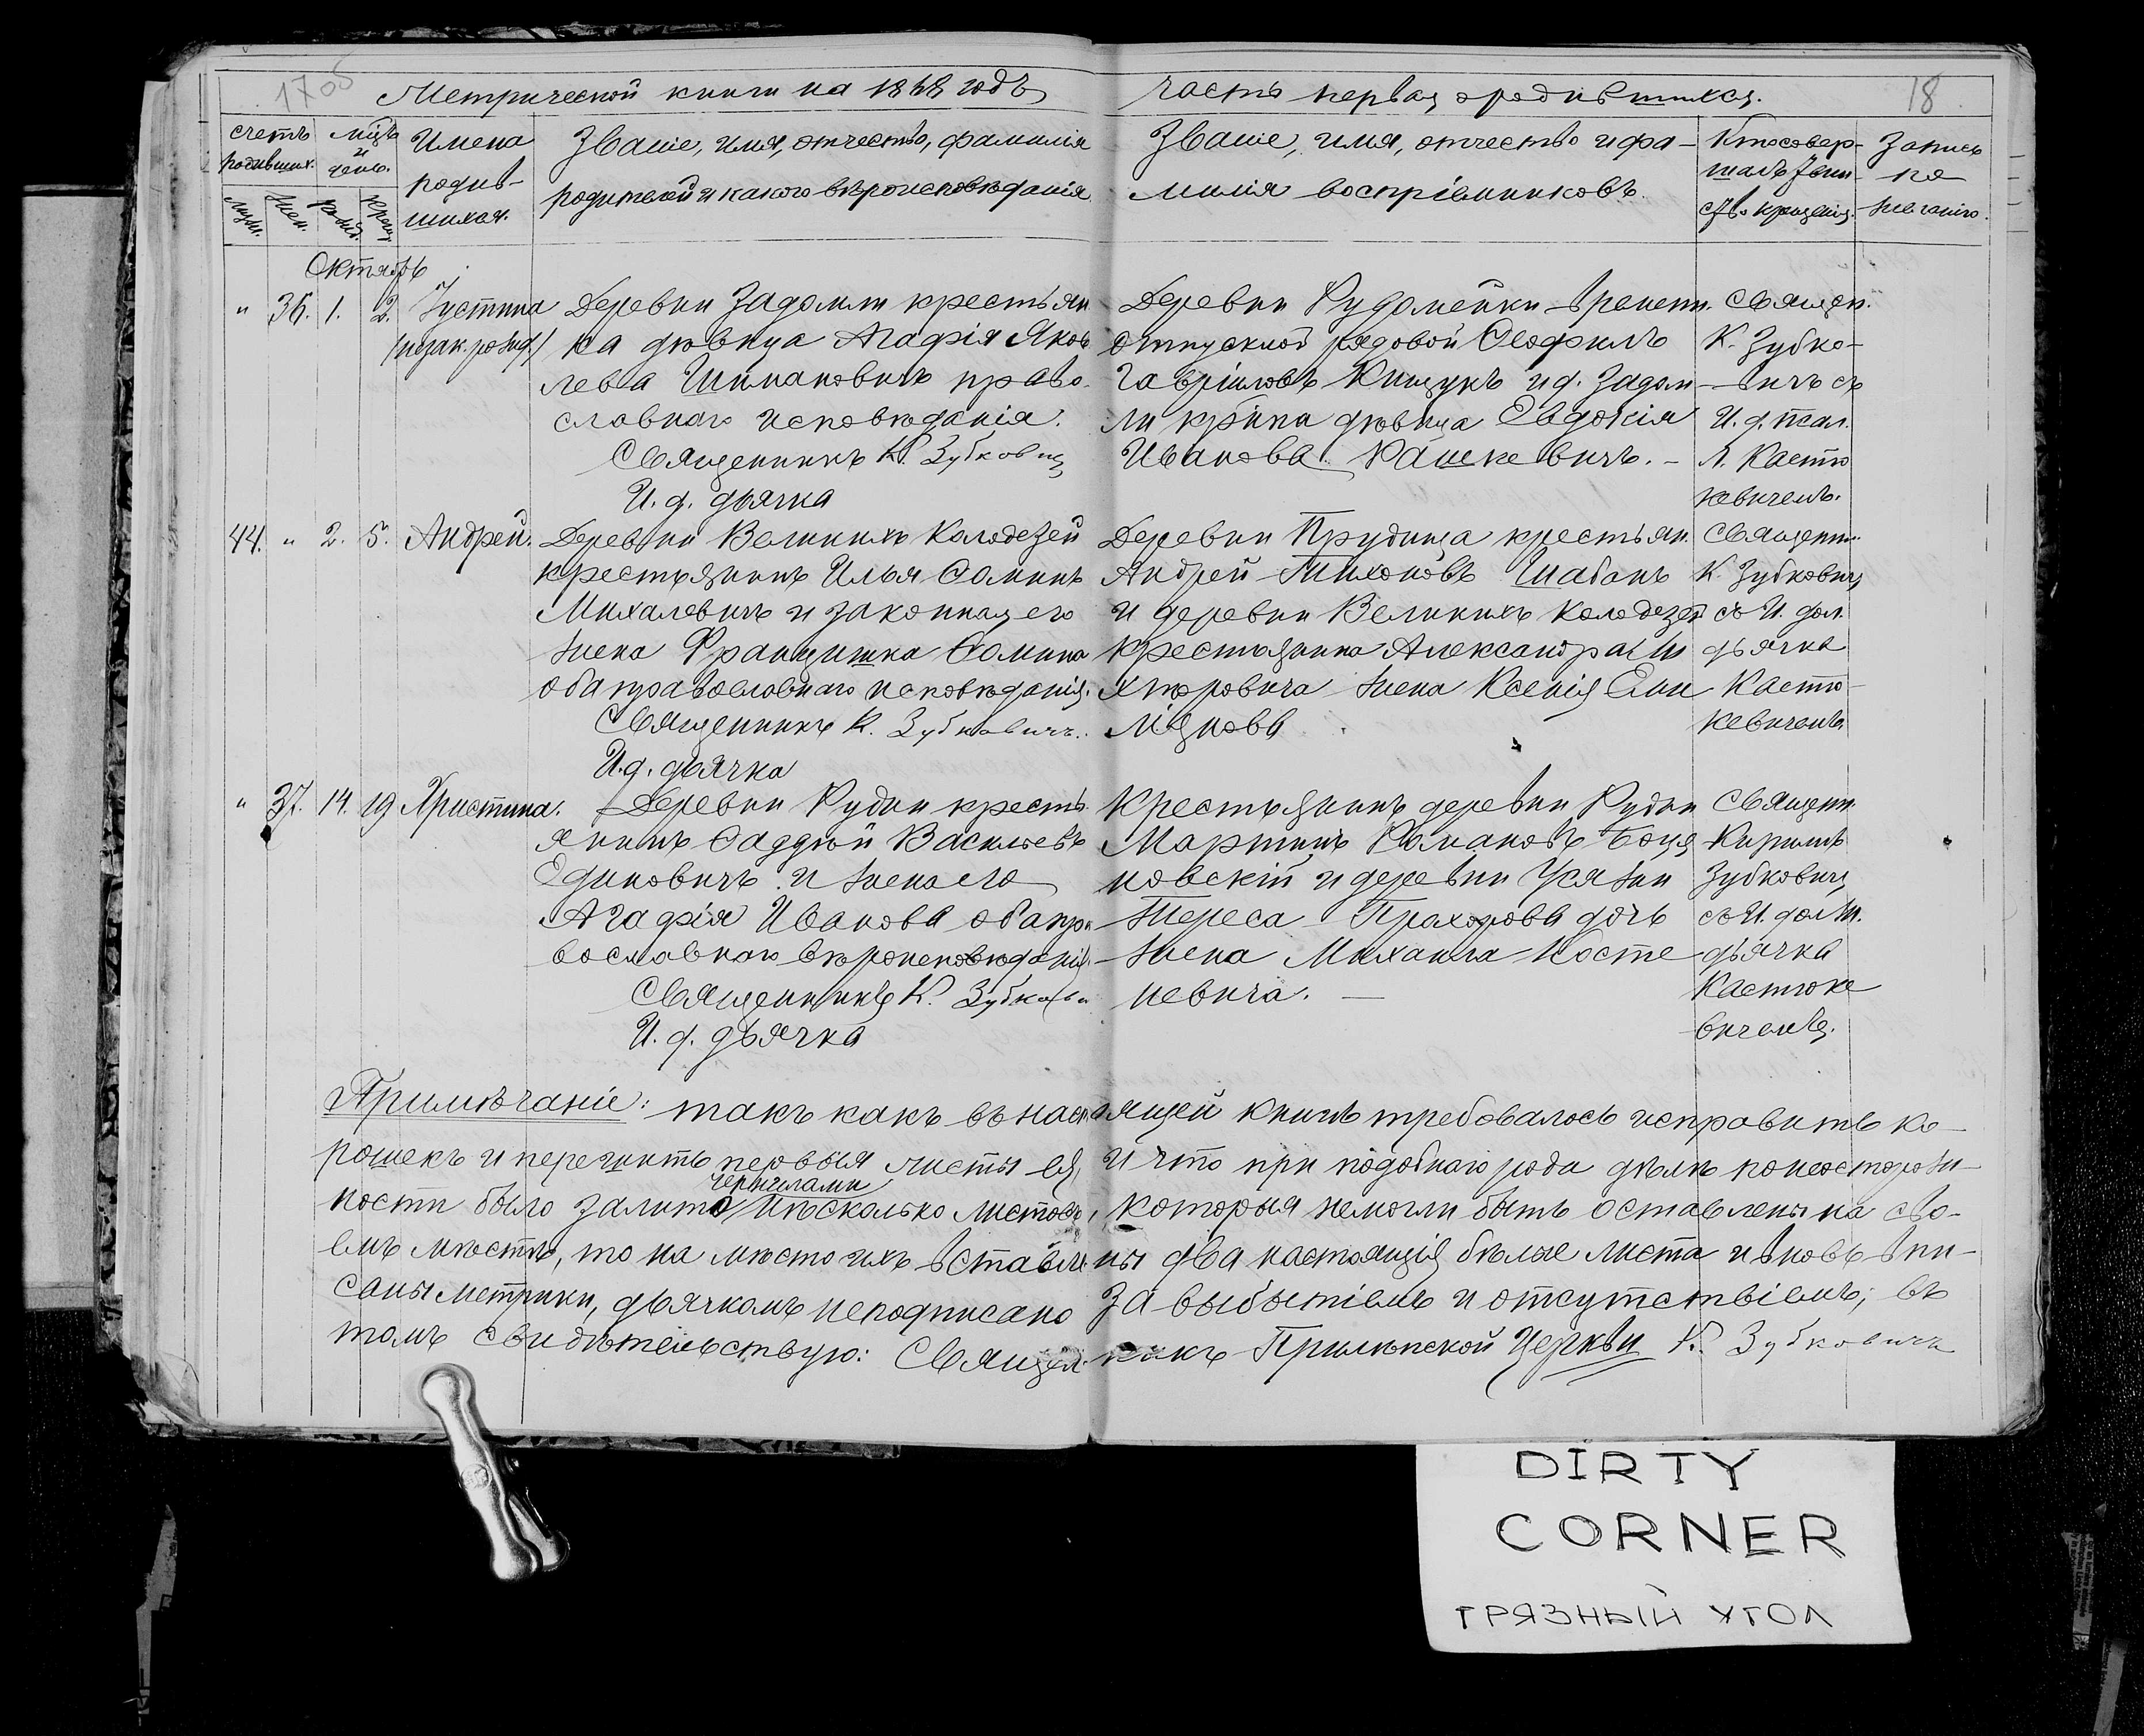 1705
Метрической книги на 1868 годъ
часть первая о родившихся.
18
счетъ родивших.
мсцъ и день.
Имена родив-
шихся.
Званіе, имя, отчество, фамилія
родителей и какого вѣроисповѣданія
Званіе, имя, отчество и фа-
милія воспріемниковъ.
Кто совер-
шалъ таин-
ство крещенія.
Запись
по
желанію.
муж.
жен.
рожд.
крещ.
Октябрь
" 36. 1. 2. Іустина
/незак. рожд./
Деревни Задомли крестьян
ка дѣвица Агафія Яков
лева Шиманович право
славнаго исповѣданія.
Священникъ К. Зубкович
И. д. дьячка
Деревни Рудомейки времен.
отпускной рядовой Ѳеофилъ
Гавріиловъ Кищукъ и д. Задом
ли кр́нка дѣвица Евдокія
Иванова Рашкевичъ. -
Священ.
К. Зубко-
вичъ съ
И. д. псал.
Л. Касто
кевичемъ.
44. " 2. 5. Андрей.
Деревни Великихъ Колодезей
крестьянинъ Илья Ѳоминъ
Михаловичъ и законная его
жена Францишка Ѳомина
оба православнаго исповѣданія.
Священникъ К. Зубковичъ.
И. д. дьячка
Деревни Прудища крестьян.
Андрей Тихоновъ Шабанъ
и деревни Великихъ Колодезей
крестьянина Александра
жена Ксенія Еми
ліянова
Священн.
К. Зубкович
съ И. дол.
дьячка
Кастю-
кевичемъ
" 37. 14. 19 Христина.
Деревни Рудни кресть
янинъ Ѳаддей Васильевъ
Единовичъ и жена его
Агафія Иванова оба пра
вославнаго вѣроисповѣданія
Священникъ К. Зубкови
И. д. дьячка
Крестьянинъ деревни Рудни
Мартинъ Романовъ Боця
новскій и деревни Усяжи
Тереса Прохорова дочь
жена Михаила Косте
невича. -
Священ.
Кириллъ
Зубкович
съ И. долж.
дьячка
Кастюке
вичемъ.
Примѣчаніе: такъ какъ въ настоящей книгѣ требовалось исправить ко-
рошекъ и перешить первыя листы ея, и что при подобнаго рода дѣлѣ по неосторож-
чернилами
ности было залито нѣсколько листовъ, которыя немогли быть оставлены на сво-
емъ мѣстѣ, то на мѣсто ихъ вставлены два настоящія бѣлые листа и вновь впи-
саны метрики, дьячкомъ неподписано за выбытіемъ и отсутствіемъ; въ
томъ свидѣтельствую: Священникъ Прилѣпской Церкви К. Зубковичъ
DIRTY
CORNER
ГРЯЗНЫЙ УГОЛ